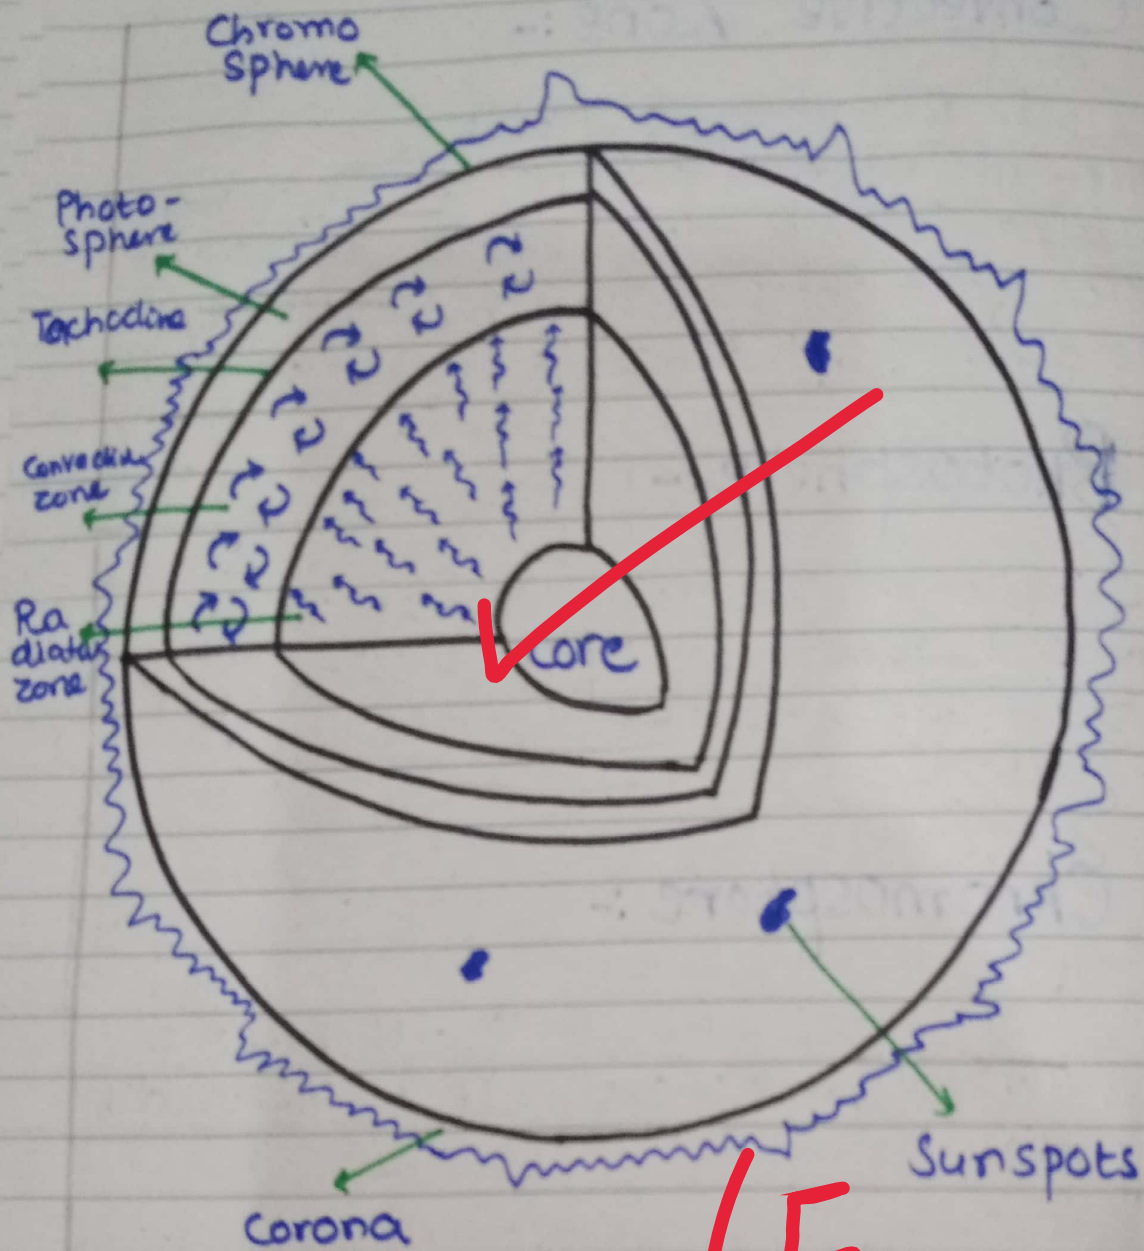 Chromo
Sphere
Photo-
Sphere
Tachocline
Convective
zone
Ra
diata
zone
Core
Sunspots
Corona